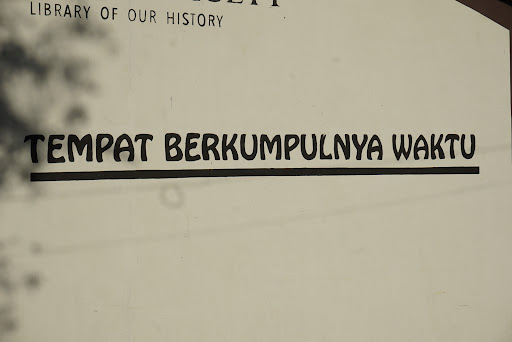 LIBRARY OF OUR HISTORY
TEMPAT BERKUMPULNYA WAKTU